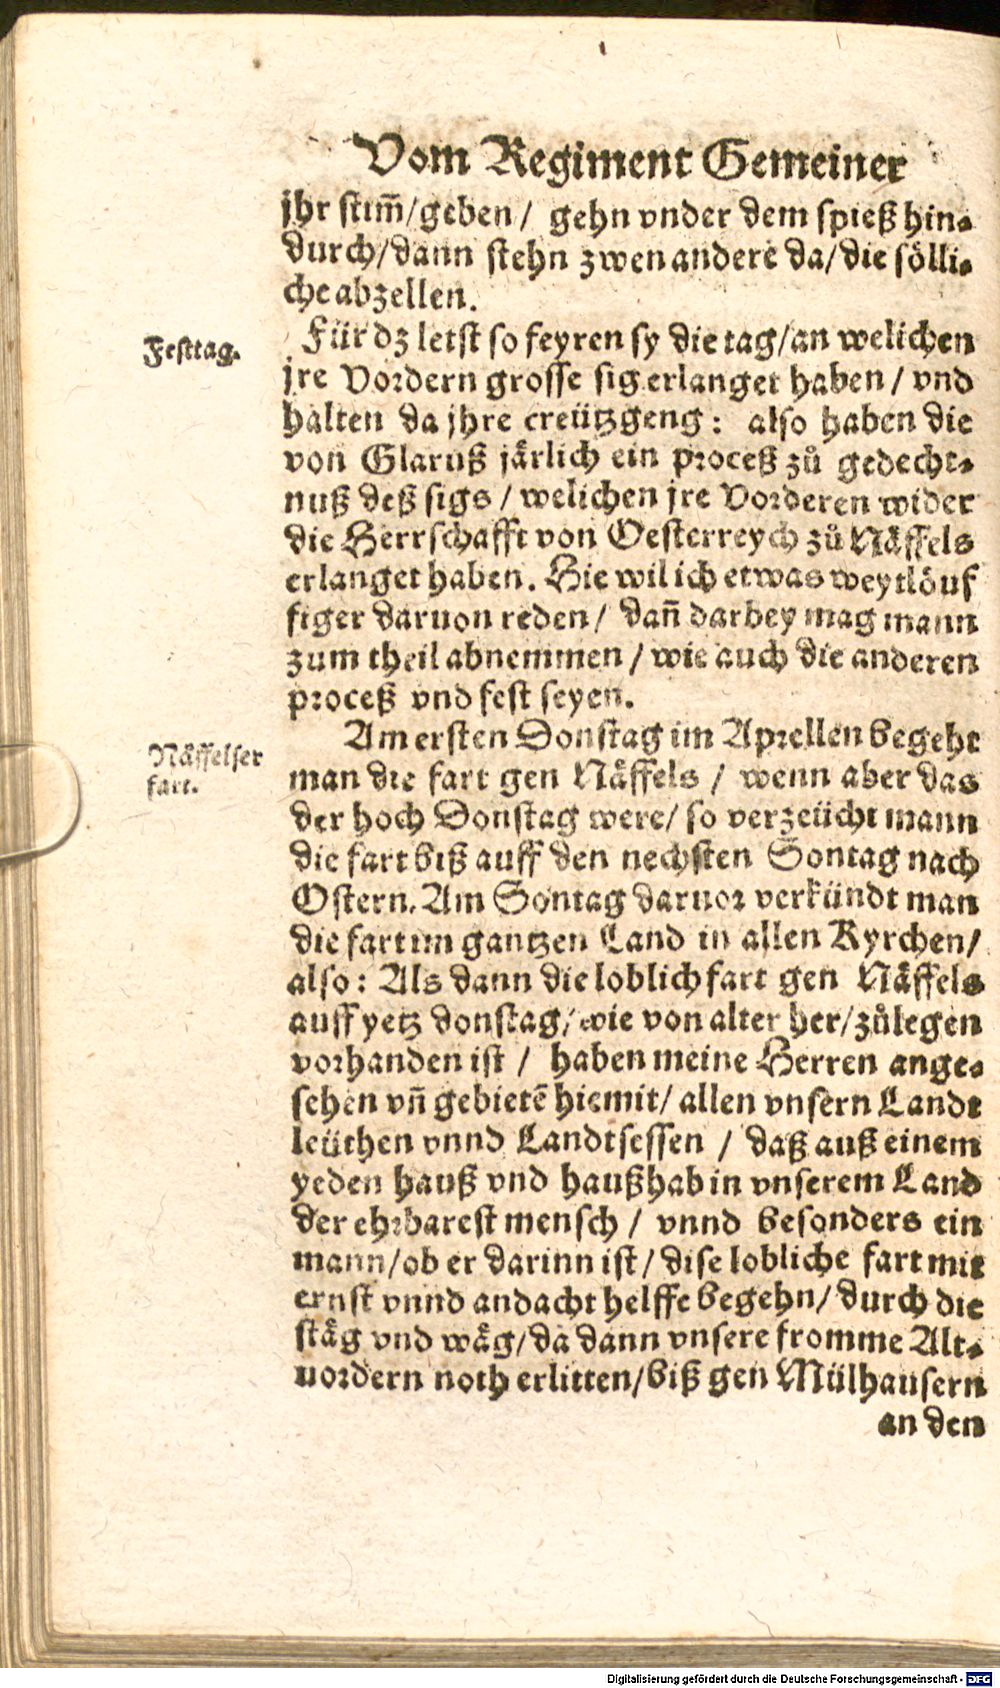 Vom Regiment Gemeiner
jhr stim̄/geben / gehn vnder dem spieß hin⸗
durch/dann stehn zwen andere da/die sölli⸗
che abzellen.
Festtag.
Für dz letst so feyren sy die tag/an welichen
jre Vordern grosse sig erlanget haben / vnd
halten da jhre creützgeng: also haben die
von Glaruß järlich ein proceß zů gedecht⸗
nuß deß sigs / welichen jre Vorderen wider
die Herrschafft von Oesterreych zů Näffels
erlanget haben. Hie wil ich etwas weytlöuf
figer daruon reden / dañ darbey mag mann
zum theil abnemmen / wie auch die anderen
proceß vnd fest seyen.
Näffelser
fart.
Am ersten Donstag im Aprellen begeht
man die fart gen Näffels / wenn aber das
der hoch Donstag were/ so verzeücht mann
die fart biß auff den nechsten Sontag nach
Ostern. Am Sontag daruor verkündt man
die fart im gantzen Land in allen Kyrchen/
also: Als dann die loblich fart gen Näffels
auff yetz donstag/wie von alter her/zůlegen
vorhanden ist / haben meine Herren ange⸗
sehen vñ gebietē hiemit/ allen vnsern Landt
leüthen vnnd Landtsessen / daß auß einem
yeden hauß vnd haußhab in vnserem Land
der ehrbarest mensch / vnnd besonders ein
mann/ob er darinn ist/ dise lobliche fart mit
ernst vnnd andacht helffe begehn/ durch die
stäg vnd wäg/da dann vnsere fromme Alt⸗
uordern noth erlitten/biß gen Mülhausern
an den
Digitalisierung gefördert durch die Deutsche Forschungsgemeinschaft - DFG